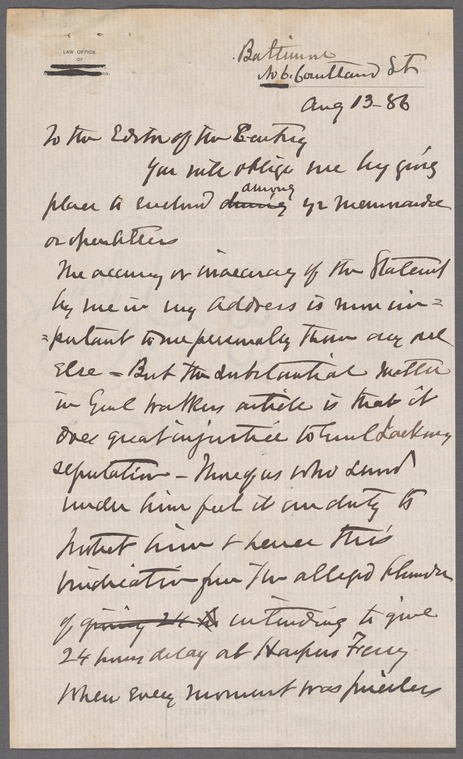 LAW OFFICE
OF
Baltimore
No 6. Courtland St.
Aug 13-86
To the Editor of the Century
You will oblige me by giving
place to enclosed during among yr memoranda
or open letters
The accuracy or inaccuracy of the Statement
by me in my address is more im=
=portant to me personally than any one
else - But the substantial matter
in Genl Walkers article is that it
does great injustice to Genl Jacksons
reputation - Those of us who served
under him feel it our duty to
protect him & hence this
vindication from the alleged blunder
of giving 24 h intending to give
24 hours delay at Harpers Ferry
when every moment was priceless